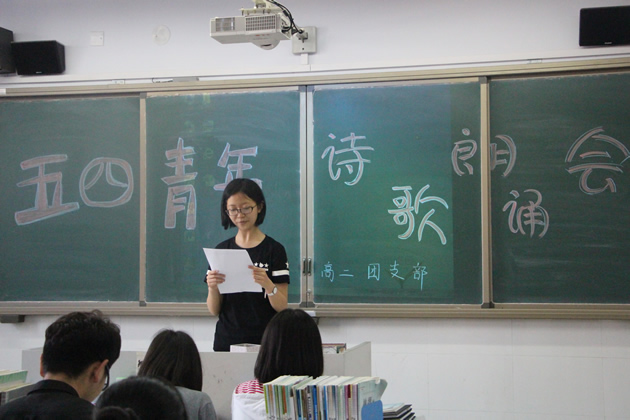 五四青年诗歌朗诵会
高二团支部